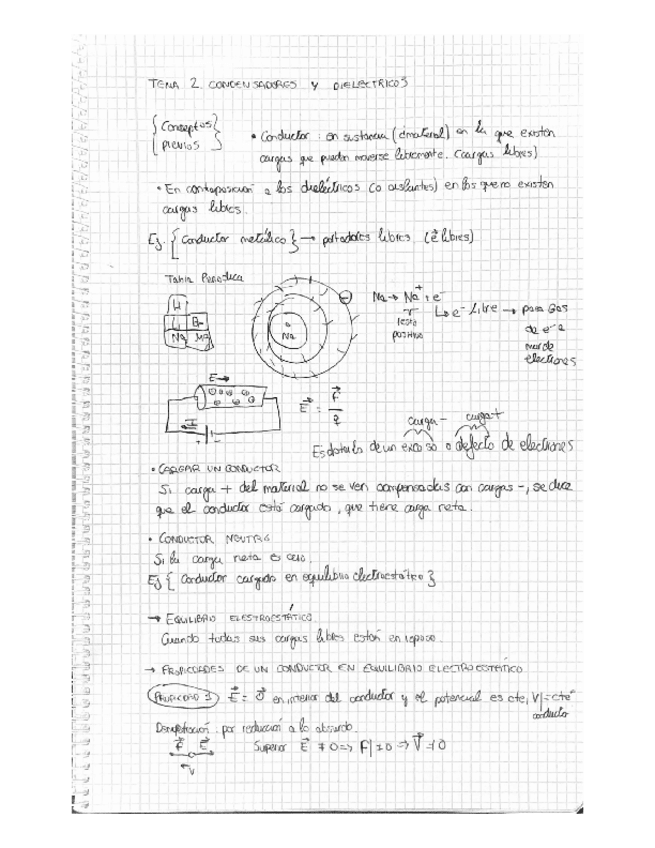 TEMA 2 CONDENSADORES Y DIELECTRICOS
{Conceptos previos}
• Conductor: en sustancia (material) en la que existen
cargas que pueden moverse libremente. (cargas libres)
• En contraposición a los dieléctricos (o aislantes) en los que no existen
cargas libres.
Ej. {Conductor metálico} → portadores libres (e⁻ libres)
Tabla Periodica
H
L Be
Na Mg
Na
Na → Na⁺ + e⁻
resto positivo
↳ e⁻ Libre → para Gas
de e⁻
mar de
electrones
E→
+ -
E⃗ = F⃗/q
carga - carga +
Es dotarlo de un exceso o defecto de electrones
• CARGAR UN CONDUCTOR
Si carga + del material no se ven compensadas con cargas -, se dice
que el conductor está cargado, que tiene carga neta.
• CONDUCTOR NEUTRO
Si la carga neta es cero.
Ej {Conductor cargado en equilibrio electrostático}
→ EQUILIBRIO ELESTROESTÁTICO
Cuando todas sus cargas libres están en reposo.
→ PROPIEDADES DE UN CONDUCTOR EN EQUILIBRIO ELECTROESTÁTICO
PROPIEDAD 1 E⃗ = 0⃗ en interior del conductor y el potencial es cte, V|=cte
conductor
Demostración: por reducción a lo absurdo.
F⃗ E⃗
Suponer E⃗ ≠ 0 ⇒ F| ≠ 0 ⇒ V⃗ ≠ 0
v